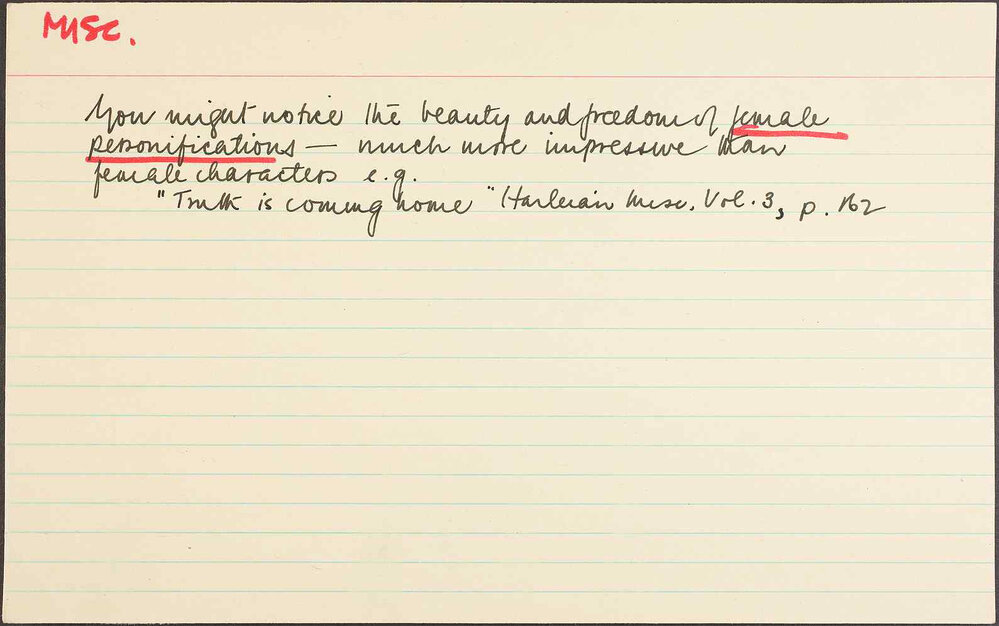 MISC.
You might notice the beauty and freedom of female
personifications — much more impressive than
female characters e.g.
"Truth is coming home" Harleian Misc. Vol. 3, p. 162